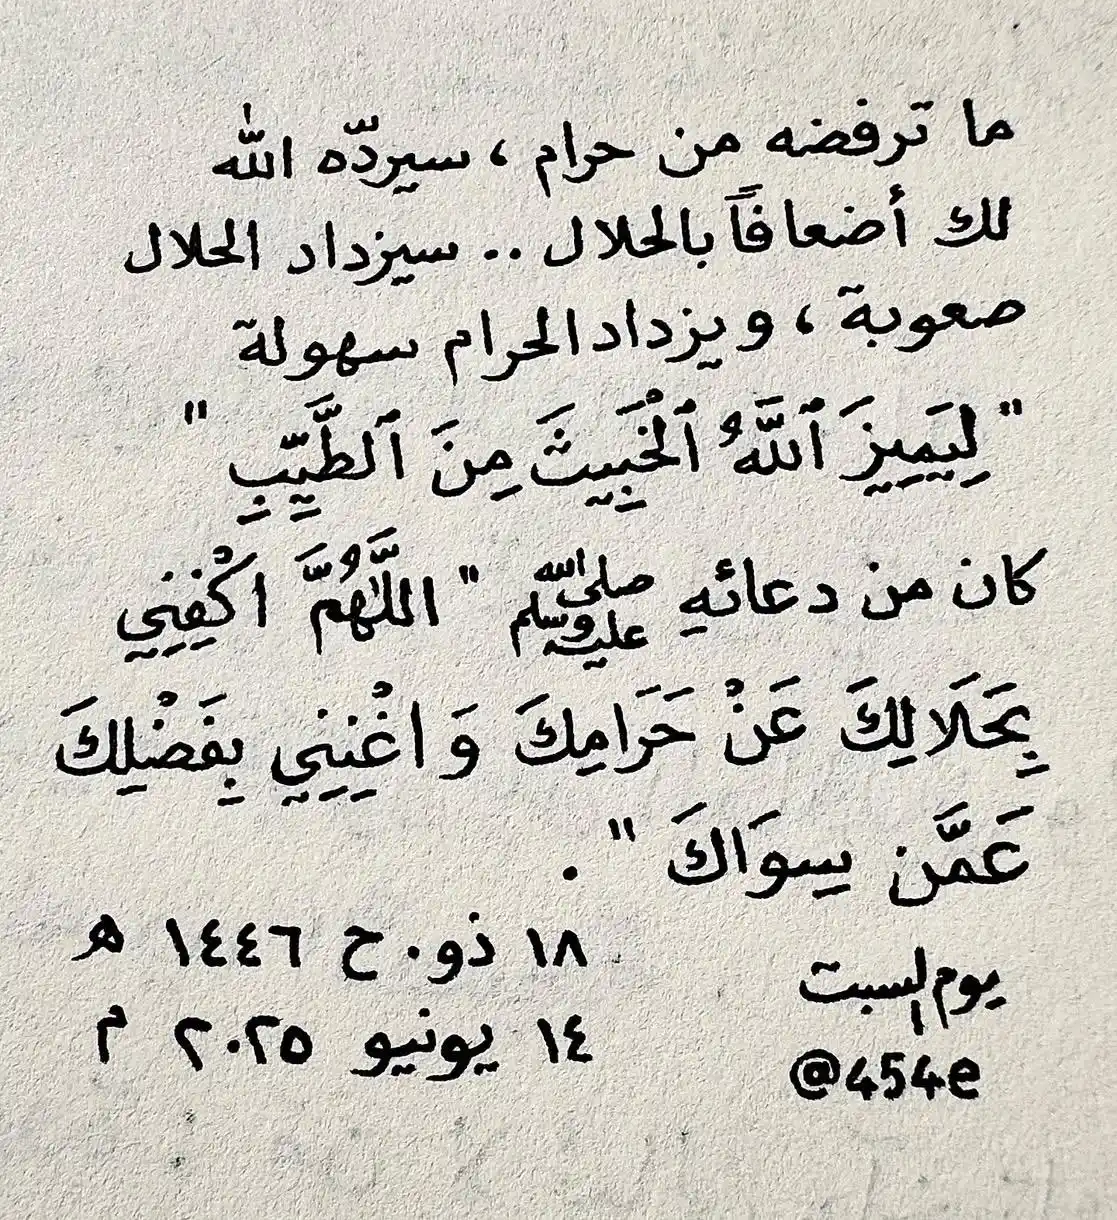 ما ترفضه من حرام ، سيردّه الله
لك أضعافاً بالحلال .. سيزداد الحلال
صعوبة ، ويزداد الحرام سهولة
" لِيَمِيزَ ٱللَّهُ ٱلْخَبِيثَ مِنَ ٱلطَّيِّبِ "
كان من دعائهِ ﷺ " اللَّهُمَّ اكْفِنِي
بِحَلَالِكَ عَنْ حَرَامِكَ وَاغْنِنِي بِفَضْلِكَ
عَمَّن سِوَاكَ " .
يوم السبت ١٨ ذو.ح ١٤٤٦ هـ
١٤ يونيو ٢٠٢٥ م
@454e